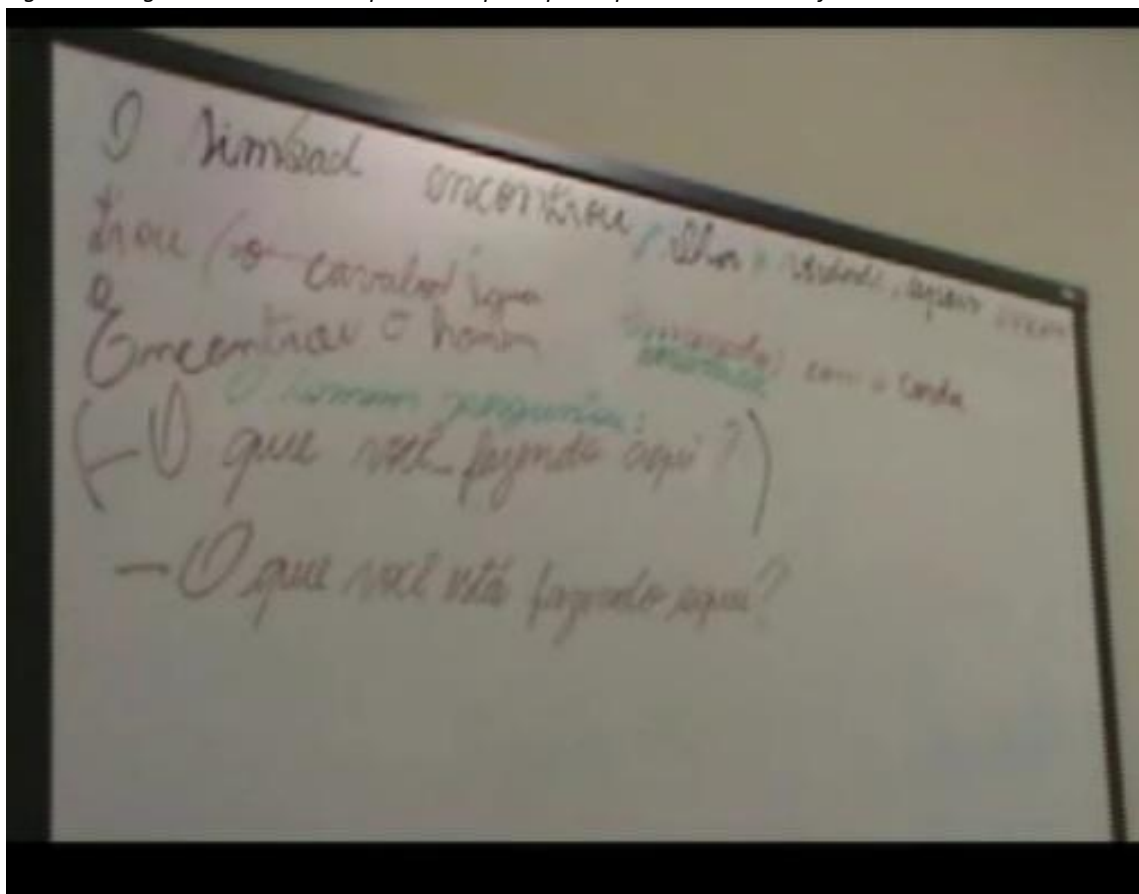 O Simbad encontrou, ilha e verdade, depois encon
trou (o cavalo) égua
Encontrou o homem amarrado com a corda
O homem pergunta:
(– O que você fazendo aqui?)
– O que você está fazendo aqui?